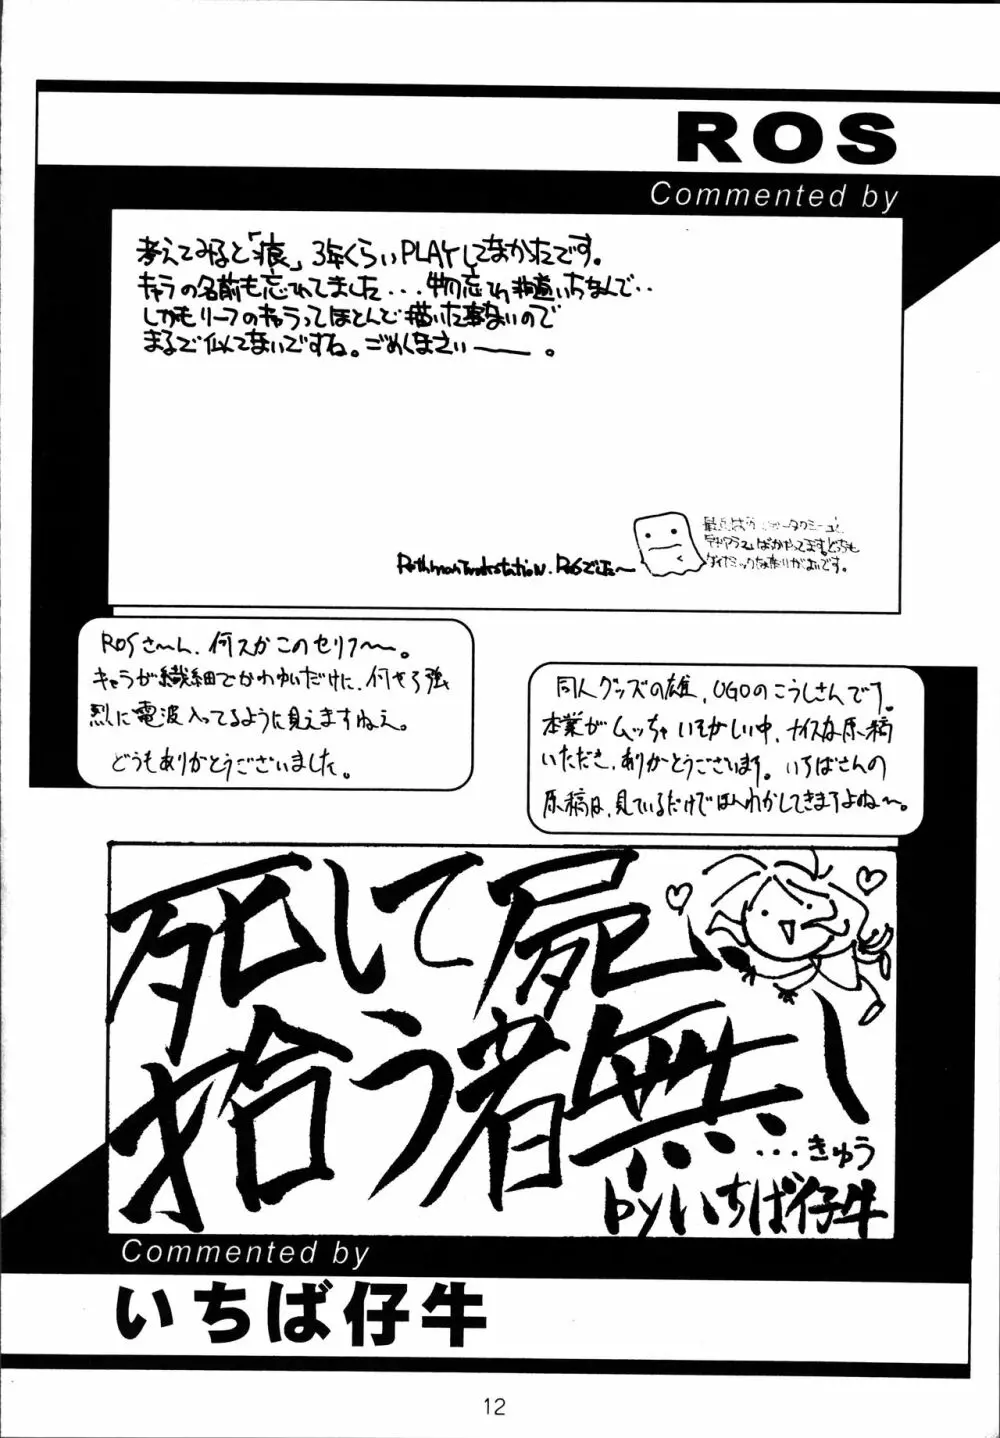 ROS
Commented by
考えてみると「痕」3年くらいPLAYしてなかったです。
キャラの名前も忘れてました...物忘れ非道いちなんで..
しかもリーフのキャラってほとんど描いた事ないので
まるで似てないですね。ごめんなさい――。
ROSでした〜
ばかやってます。どちらも
ダイナミックな
ROSさ〜ん、何スかこのセリフ〜。
キャラが繊細でかわゆいだけに、何やら強
烈に電波入ってるように見えますねえ。
どうもありがとうございました。
同人グッズの雄、UGOのこうしさんです。
本業がムッチャいそがしい中、ナイスな原稿
いただき、ありがとうございます。いちばさんの
原稿は、見ているだけでほんわかしてきますよね〜。
死して屍
拾う者無し
...きゅう
byいちば仔牛
Commented by
いちば仔牛
12